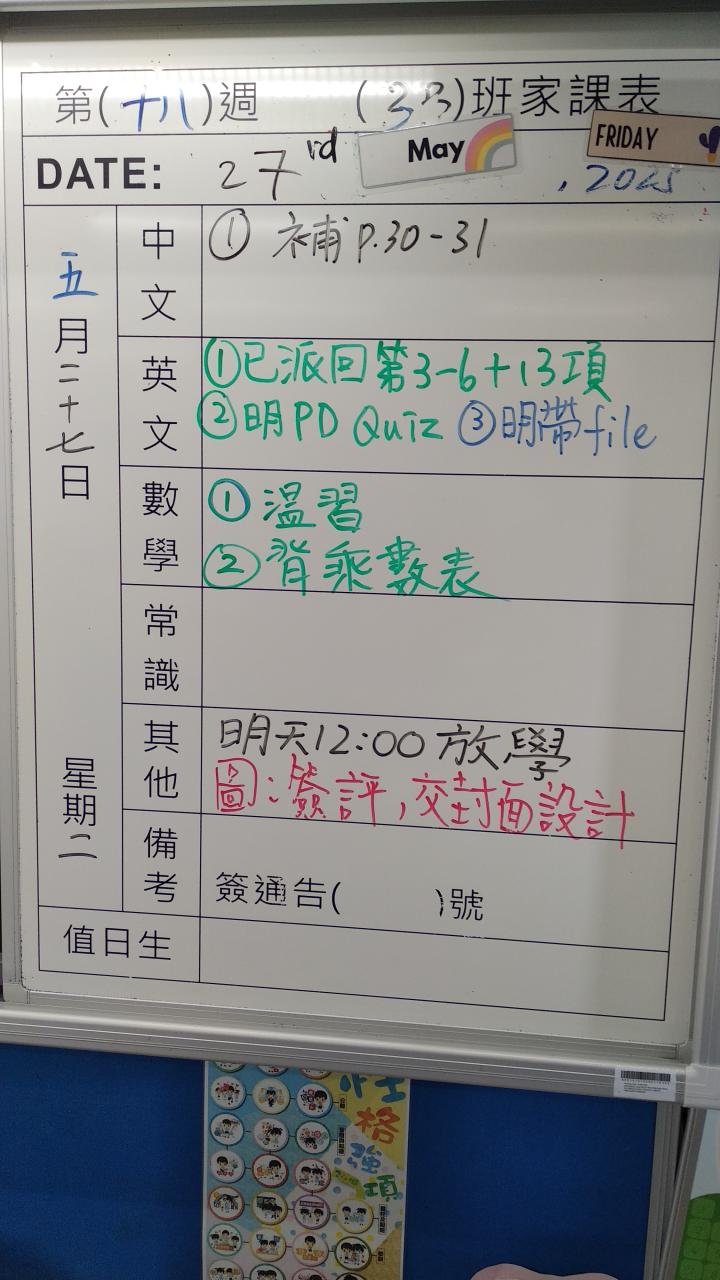 第(十八)週 (3B)班家課表
DATE: 27rd May FRIDAY , 2025
五月二十七日 星期二
中文
① 補 P.30-31
英文
①已派回第3-6+13項
②明 PD Quiz ③明帶file
數學
① 溫習
② 背乘數表
常識
其他
明天12:00放學
圖:簽評,交封面設計
備考
簽通告( )號
值日生
性格強項